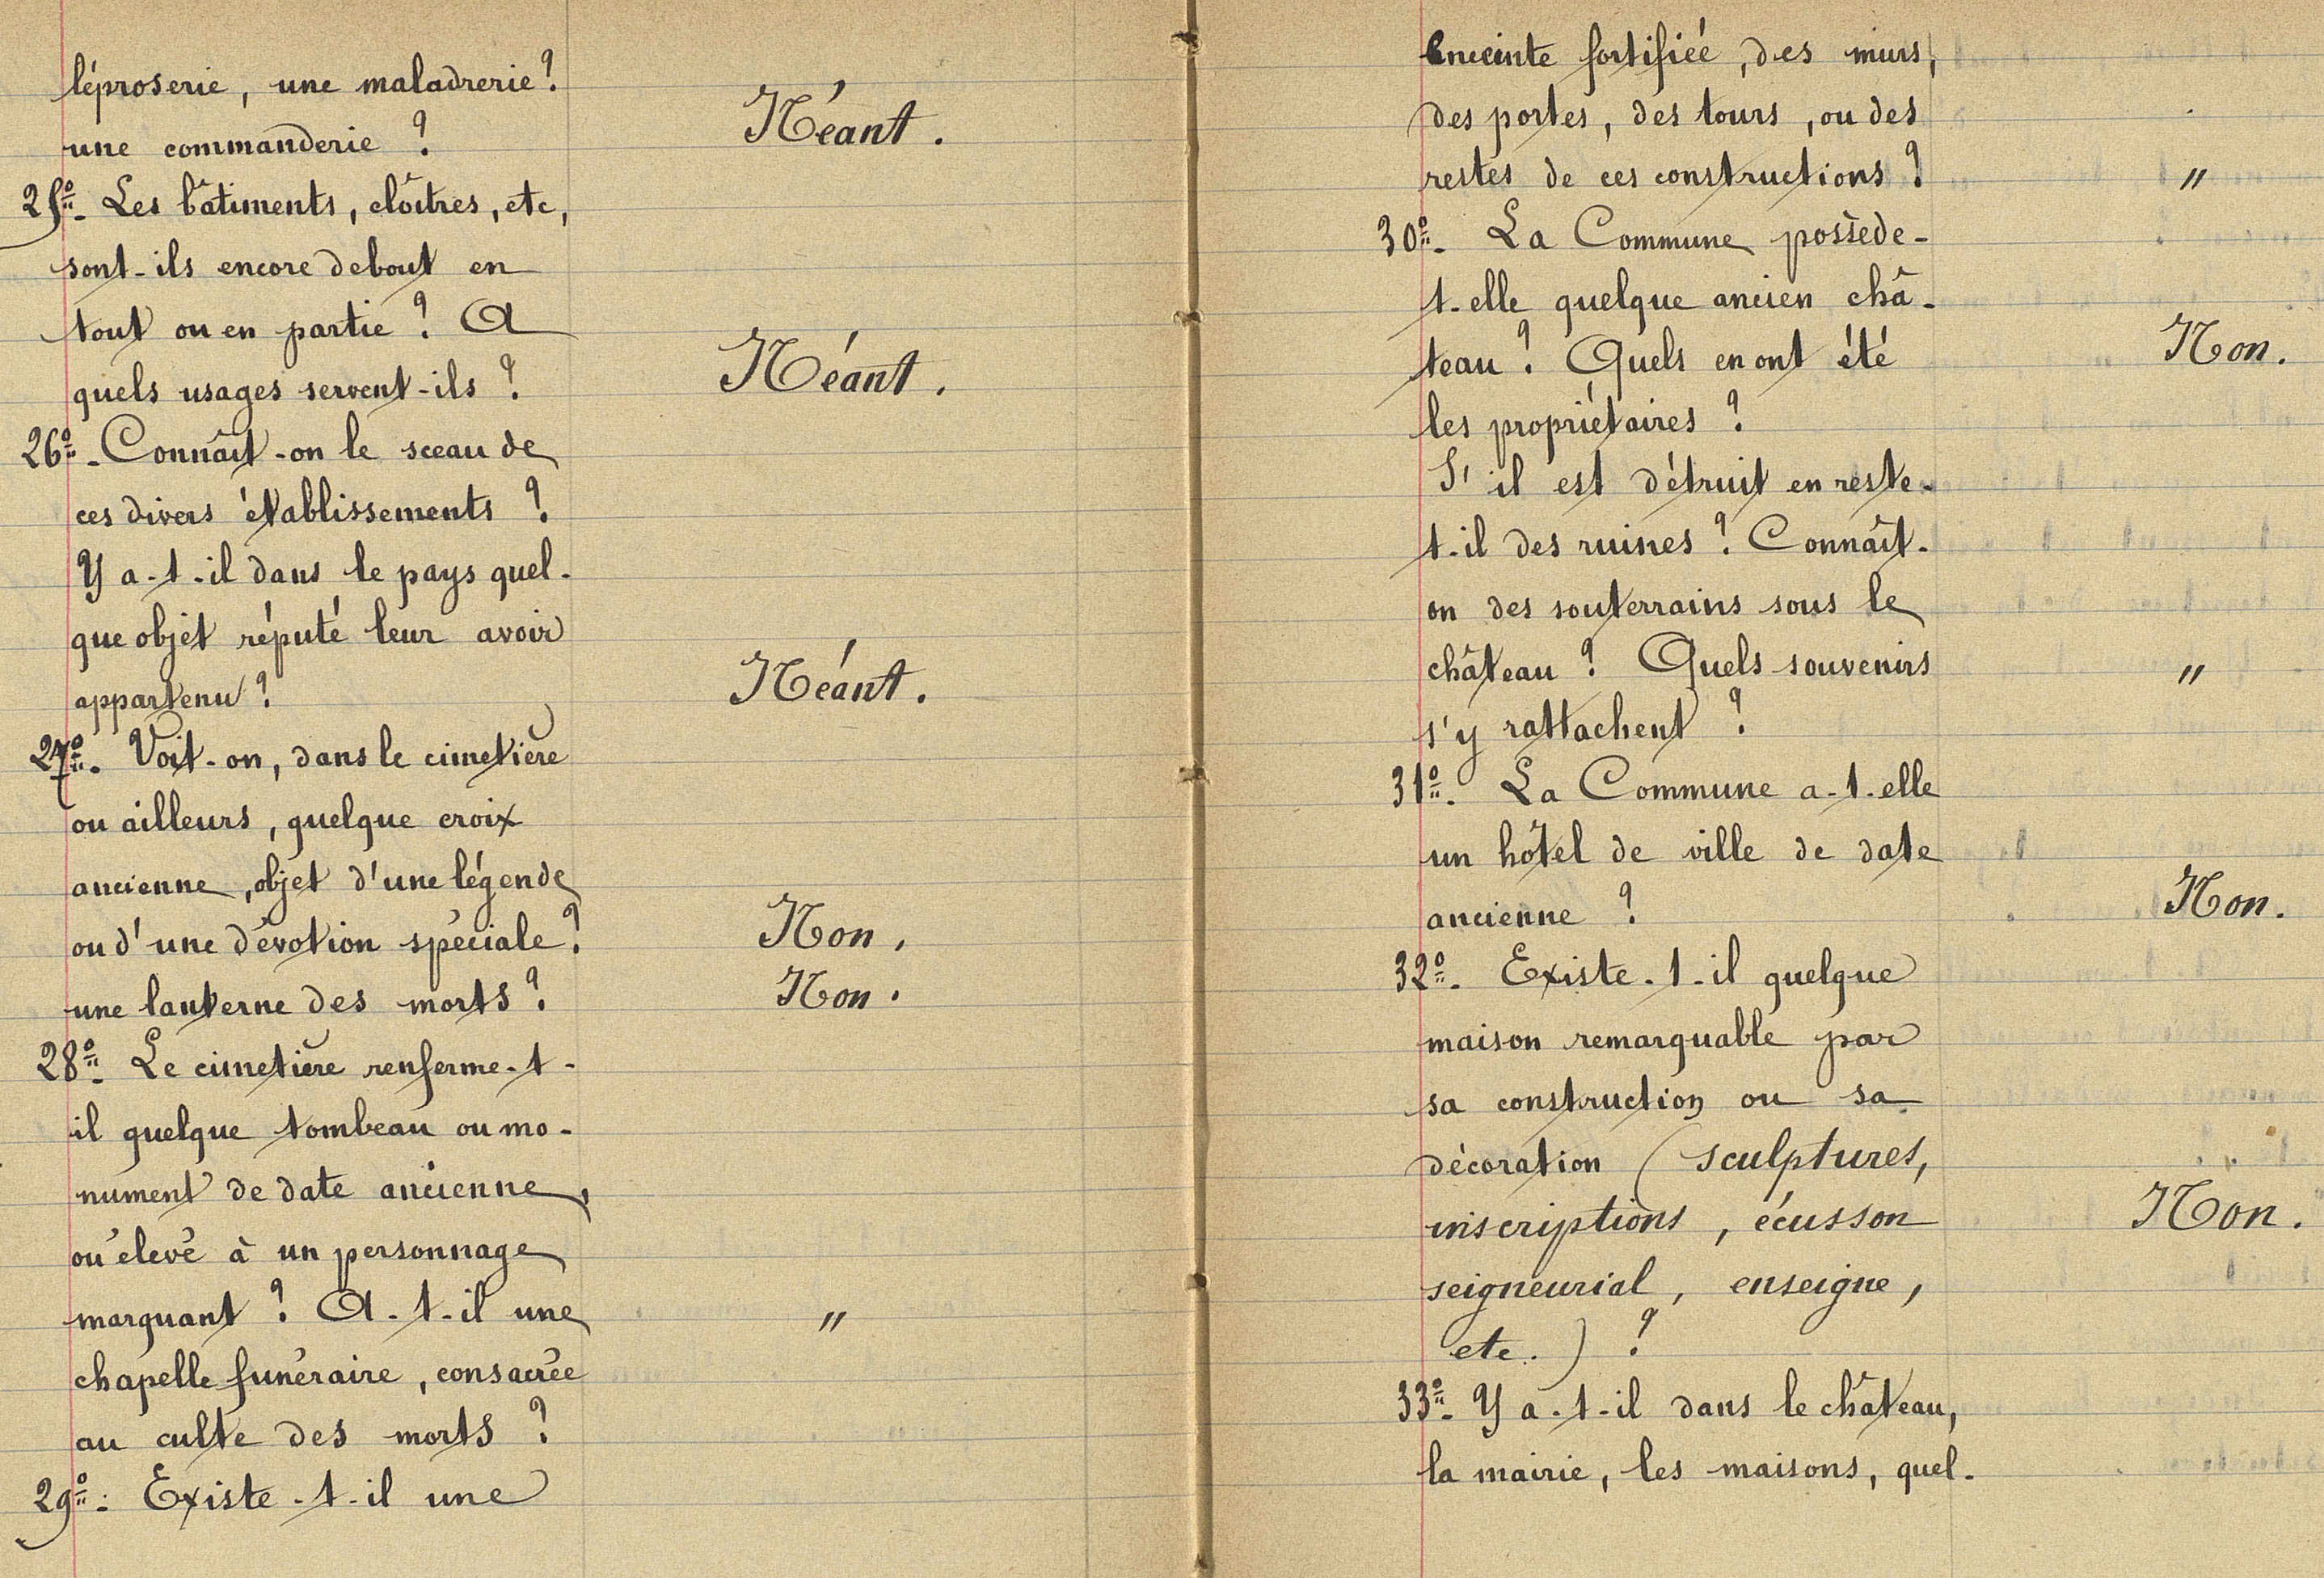 léproserie, une maladrerie ?
une commanderie ? Néant.
25º. Les bâtiments, cloîtres, etc,
sont-ils encore debout en
tout ou en partie ? A
quels usages servent-ils ? Néant.
26º. Connaît-on le sceau de
ces divers établissements ?
Y a-t-il dans le pays quel-
que objet réputé leur avoir
appartenu ? Néant.
27º. Voit-on, dans le cimetière
ou ailleurs, quelque croix
ancienne, objet d'une légende
ou d'une dévotion spéciale ? Non.
une lanterne des morts ? Non.
28º. Le cimetière renferme-t-
il quelque tombeau ou mo-
nument de date ancienne,
ou élevé à un personnage
marquant ? A-t-il une "
chapelle funéraire, consacrée
au culte des morts ?
29º. Existe-t-il une
Enceinte fortifiée, des murs,
des portes, des tours, ou des
restes de ces constructions ? "
30º. La Commune possède-
t-elle quelque ancien châ-
teau ? Quels en ont été Non.
les propriétaires ?
S'il est détruit en reste-
t-il des ruines ? Connaît-
on des souterrains sous le
château ? Quels souvenirs "
s'y rattachent ?
31º. La Commune a-t-elle
un hôtel de ville de date
ancienne ? Non.
32º. Existe-t-il quelque
maison remarquable par
sa construction ou sa
décoration (sculptures,
inscriptions, écusson Non.
seigneurial, enseigne,
etc.) ?
33º. Y a-t-il dans le château,
la mairie, les maisons, quel-